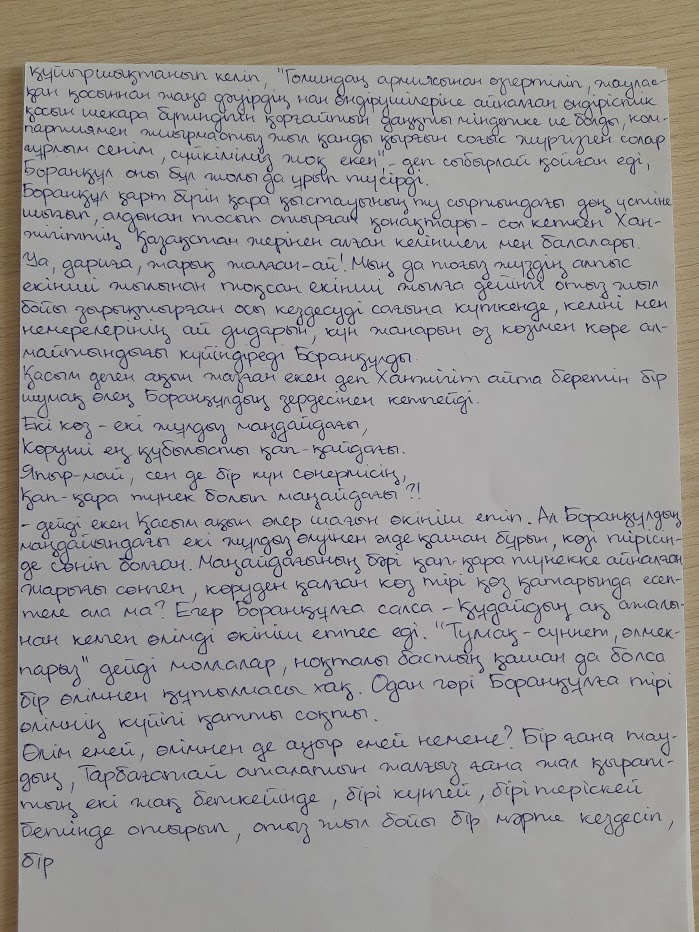 құйыршықтанып келіп, "Гоминдаң армиясынан өзгертіліп, жаулас-
қан қосыннан жаңа дәуірдің нан өндірушілеріне айналған өндірістік
қосын шекара бүтіндігін қорғайтын даңқты міндетке ие болды, ком-
партиямен жиырмаотыз жыл қанды қырғын соғыс жүргізген солар
ғұрлым сенім, сүйкіміміз жоқ екен", - деп сыбырлай қойған еді,
Боранқұл оны бұл жолы да ұрып түсірді.
Боранқұл қарт бүгін қара қыстауының ту сыртындағы дөң үстіне
шығып, алдынан тосып отырған қонақтары - сол кеткен Хан-
жігіттің Қазақстан жерінен алған келіншегі мен балалары.
Уа, дариға, жарық жалған-ай! Мың да тоғыз жүздің алпыс
екінші жылынан тоқсан екінші жылға дейінгі отыз жыл
бойы зарықтырған осы кездесуді сағына күткенде, келіні мен
немерелерінің ай дидарын, күн жанарын өз көзімен көре ал-
майтындығы күйіндіреді Боранқұлды.
Қасым деген ақын жазған екен деп Ханжігіт айта беретін бір
шумақ өлең Боранқұлдың зердесінен кетпейді.
Екі көз - екі жұлдыз маңдайдағы,
Көруші ең құбылысты қап-қайдағы.
Япыр-май, сен де бір күн сөнермісің,
Қап-қара түнек болып маңайдағы?!
- дейді екен Қасым ақын өлер шағын өкініш етіп. Ал Боранқұлдың
маңдайындағы екі жұлдыз өлуінен әлде қашан бұрын, көзі тірісін-
де сөніп болған. Маңайдағының бәрі қап-қара түнекке айналған
жарығы сөнген, көруден қалған көз тірі көз қатарында есеп-
теле ала ма? Егер Боранқұлға салса - құдайдың ақ аталы-
нан кетен өлімді өкініш етпес еді. "Тумақ-сүннет, өлмек-
парыз" дейді моллалар, ноқталы бастың қашан да болса
бір өлімнен құтылмасы хақ. Одан гөрі Боранқұлға тірі
өлімнің күйігі қатты соқты.
Өлім емей, өлімнен де ауыр емей немене? Бір ғана тау-
дың, Тарбағатай аталатын жалғыз ғана жал қырат-
тың екі жақ беткейінде, бірі күнгей, бірі теріскей
бетінде отырып, отыз жыл бойы бір мәрте кездесіп,
бір